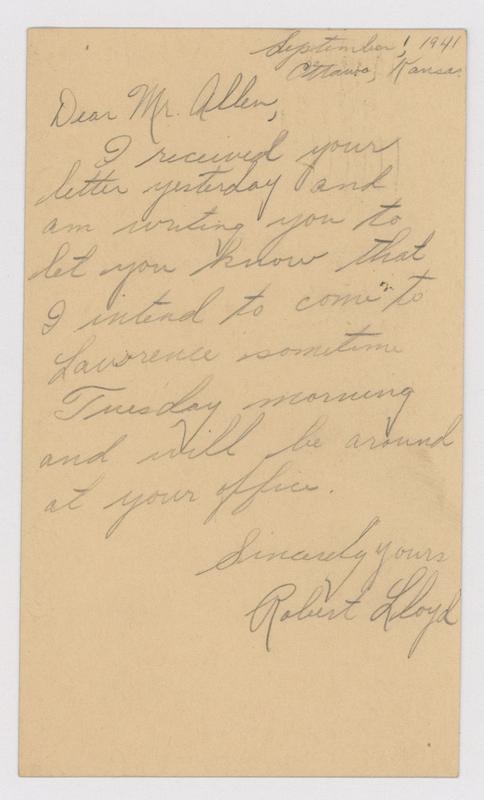 September 1, 1941
Ottawa, Kansas
Dear Mr. Allen,
I received your
letter yesterday and
am writing you to
let you know that
I intend to come to
Lawrence sometime
Tuesday morning
and will be around
at your office.
Sincerely yours
Robert Lloyd